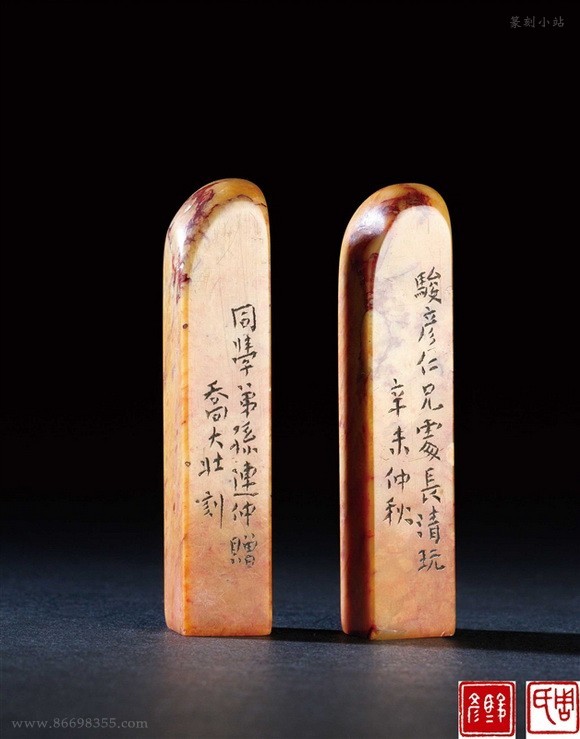 篆刻小站
駿彥仁兄處長清玩
辛未仲秋
同學弟孫連仲贈
喬大壯刻
周氏
www.86698355.com